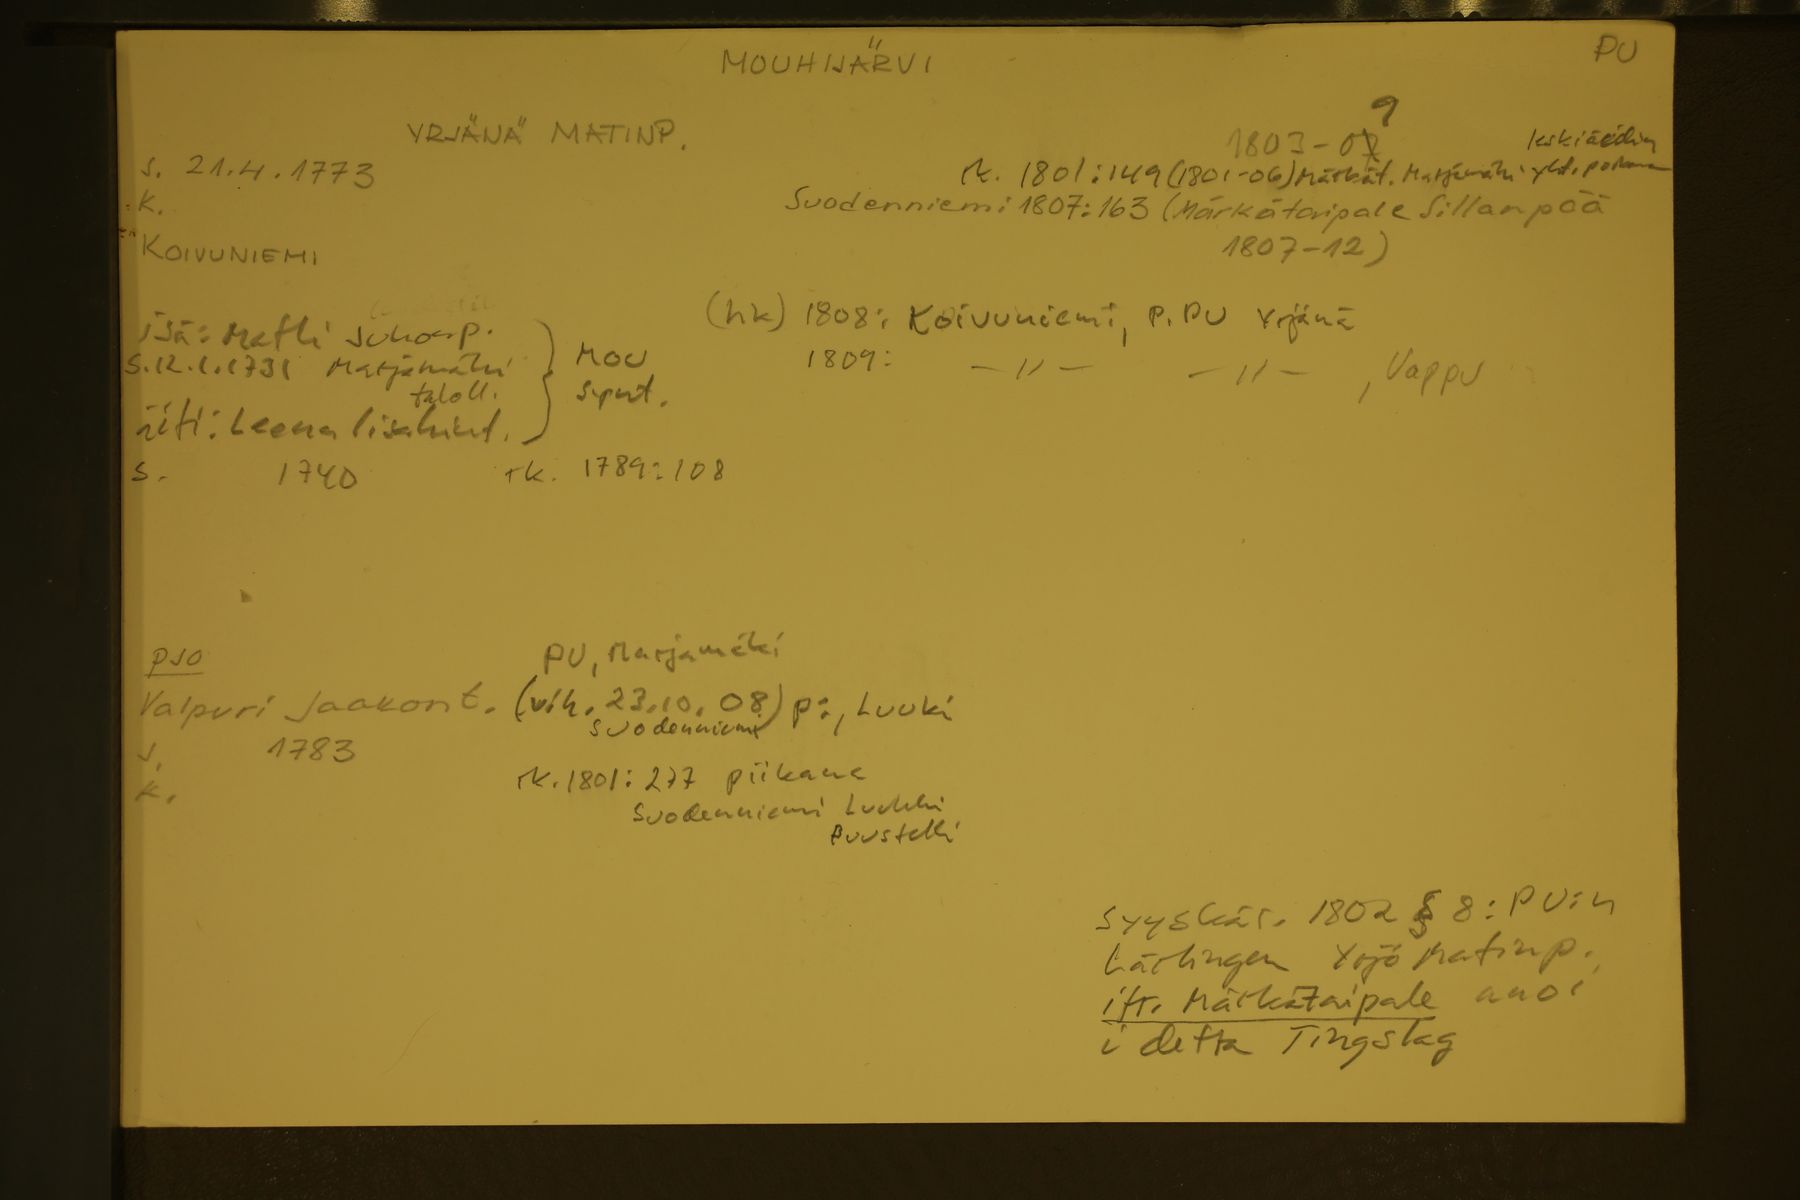 MOUHIJÄRVI
PU
YRJÄNÄ MATINP.
1803-07 9
s. 21.4.1773
k.
KOIVUNIEMI
rk. 1801:149 (1801-06) Märkät. Marjamäki yht. poikana
Suodenniemi 1807:163 (Märkätaipale Sillanpää
1807-12)
isä: Matti Juhonp.
s. 12.1.1731 Marjamäki
taloll.
äiti: Leena Liisaknt.
s. 1740
MOU
synt.
rk. 1789:108
(hk) 1808: Koivuniemi, p. PU Yrjänä
1809: -〃- -〃-, Vappu
PSO
Valpuri Jaakont. (vih. 23.10.08) p:, Luuki
PU, Marjamäki
Suodenniemi
s. 1783
k.
rk. 1801:277 piikana
Suodenniemi Luukki
Puustelli
Syyskär. 1802 § 8: PU:n
Lärlingen Yrjö Matinp.
ifr. Märkätaipale anoi
i detta Tingslag